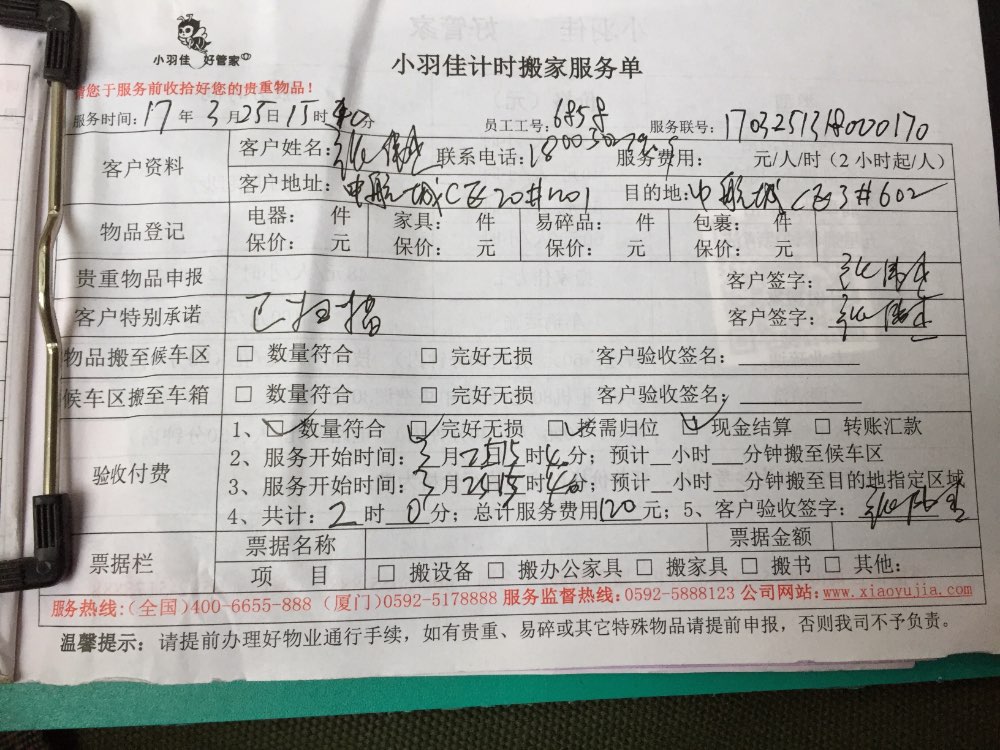 小羽佳 好管家
小羽佳计时搬家服务单
请您于服务前收拾好您的贵重物品！
服务时间：17年3月25日15时40分 员工工号：6858 服务联号：1703251318000170
客户资料 客户姓名： 联系电话： 服务费用： 元/人/时（2小时起/人）
客户地址：中航城C区20# 目的地：中航城C区3#602
物品登记 电器： 件 家具： 件 易碎品： 件 包裹： 件
保价： 元 保价： 元 保价： 元 保价： 元
贵重物品申报 客户签字：
客户特别承诺 已扫描 客户签字：
物品搬至候车区 □ 数量符合 □ 完好无损 客户验收签名：
候车区搬至车箱 □ 数量符合 □ 完好无损 客户验收签名：
验收付费 1、☑数量符合 ☑完好无损 ☑按需归位 ☑现金结算 □ 转账汇款
2、服务开始时间：3月25日15时40分；预计__小时___分钟搬至候车区
3、服务开始时间：3月25日15时40分；预计__小时___分钟搬至目的地指定区域
4、共计：2时0分；总计服务费用120元；5、客户验收签字：
票据栏 票据名称 票据金额
项 目 □ 搬设备 □ 搬办公家具 □ 搬家具 □ 搬书 □ 其他：
服务热线：（全国）400-6655-888（厦门）0592-5178888 服务监督热线：0592-5888123 公司网站：www.xiaoyujia.com
温馨提示：请提前办理好物业通行手续，如有贵重、易碎或其它特殊物品请提前申报，否则我司不予负责。